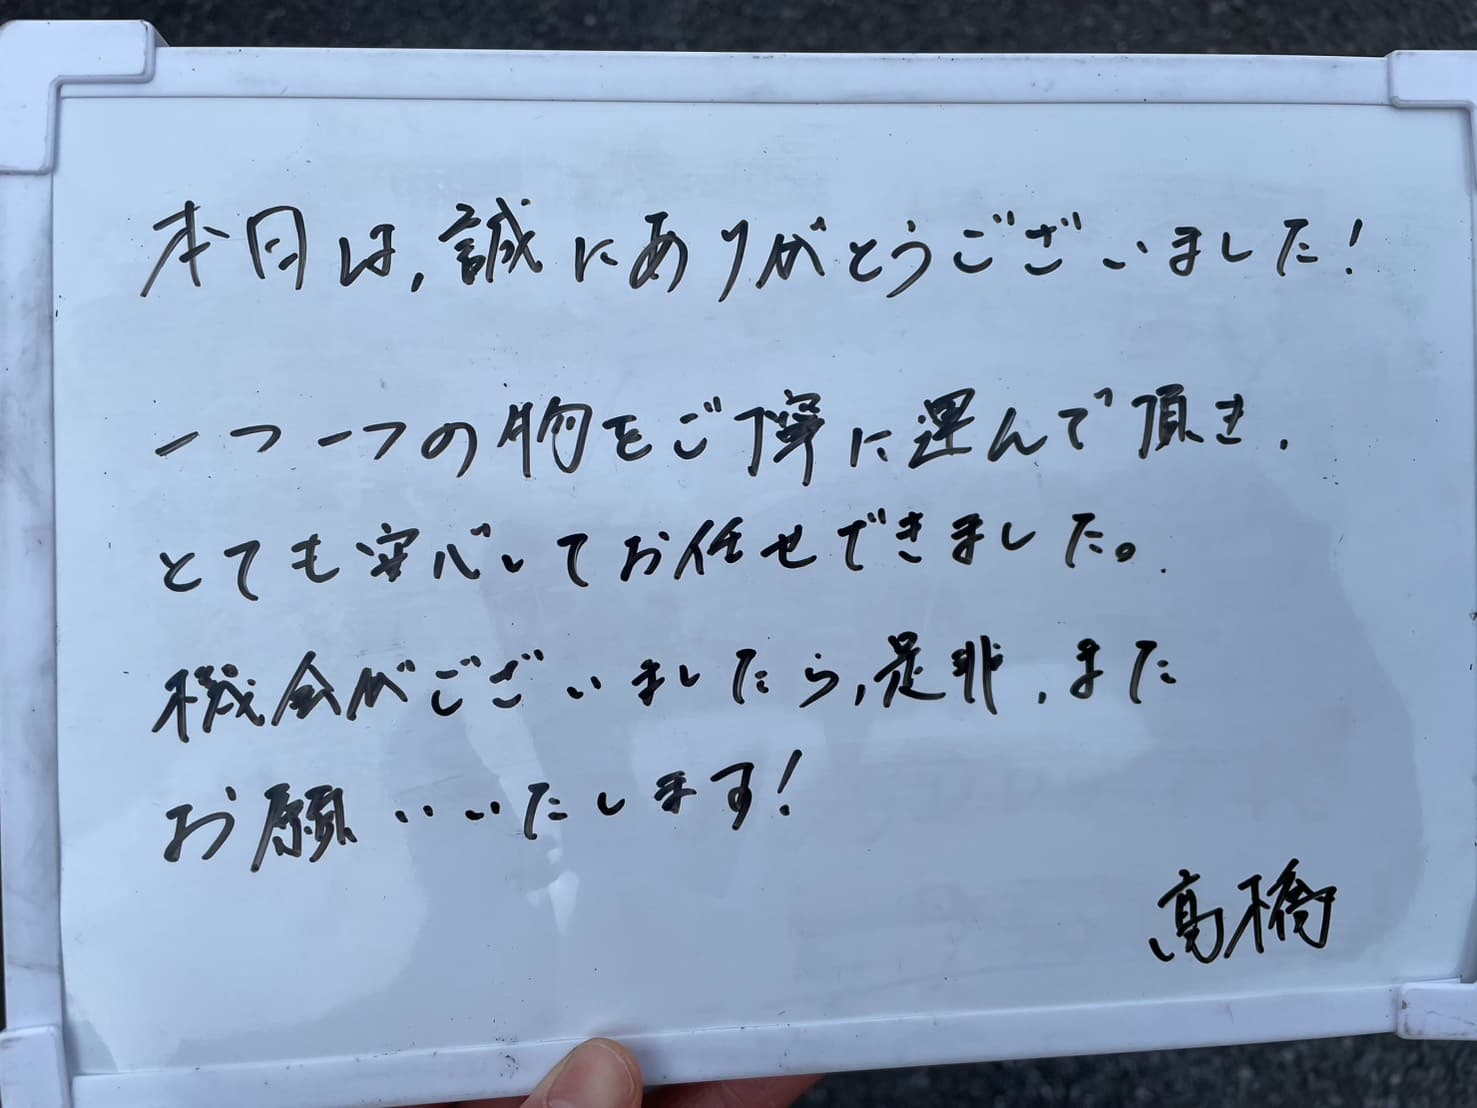 本日は、誠にありがとうございました!
一つ一つの物をご丁寧に運んで頂き、
とても安心してお任せできました。
機会がございましたら、是非、また
お願いいたします!
高橋